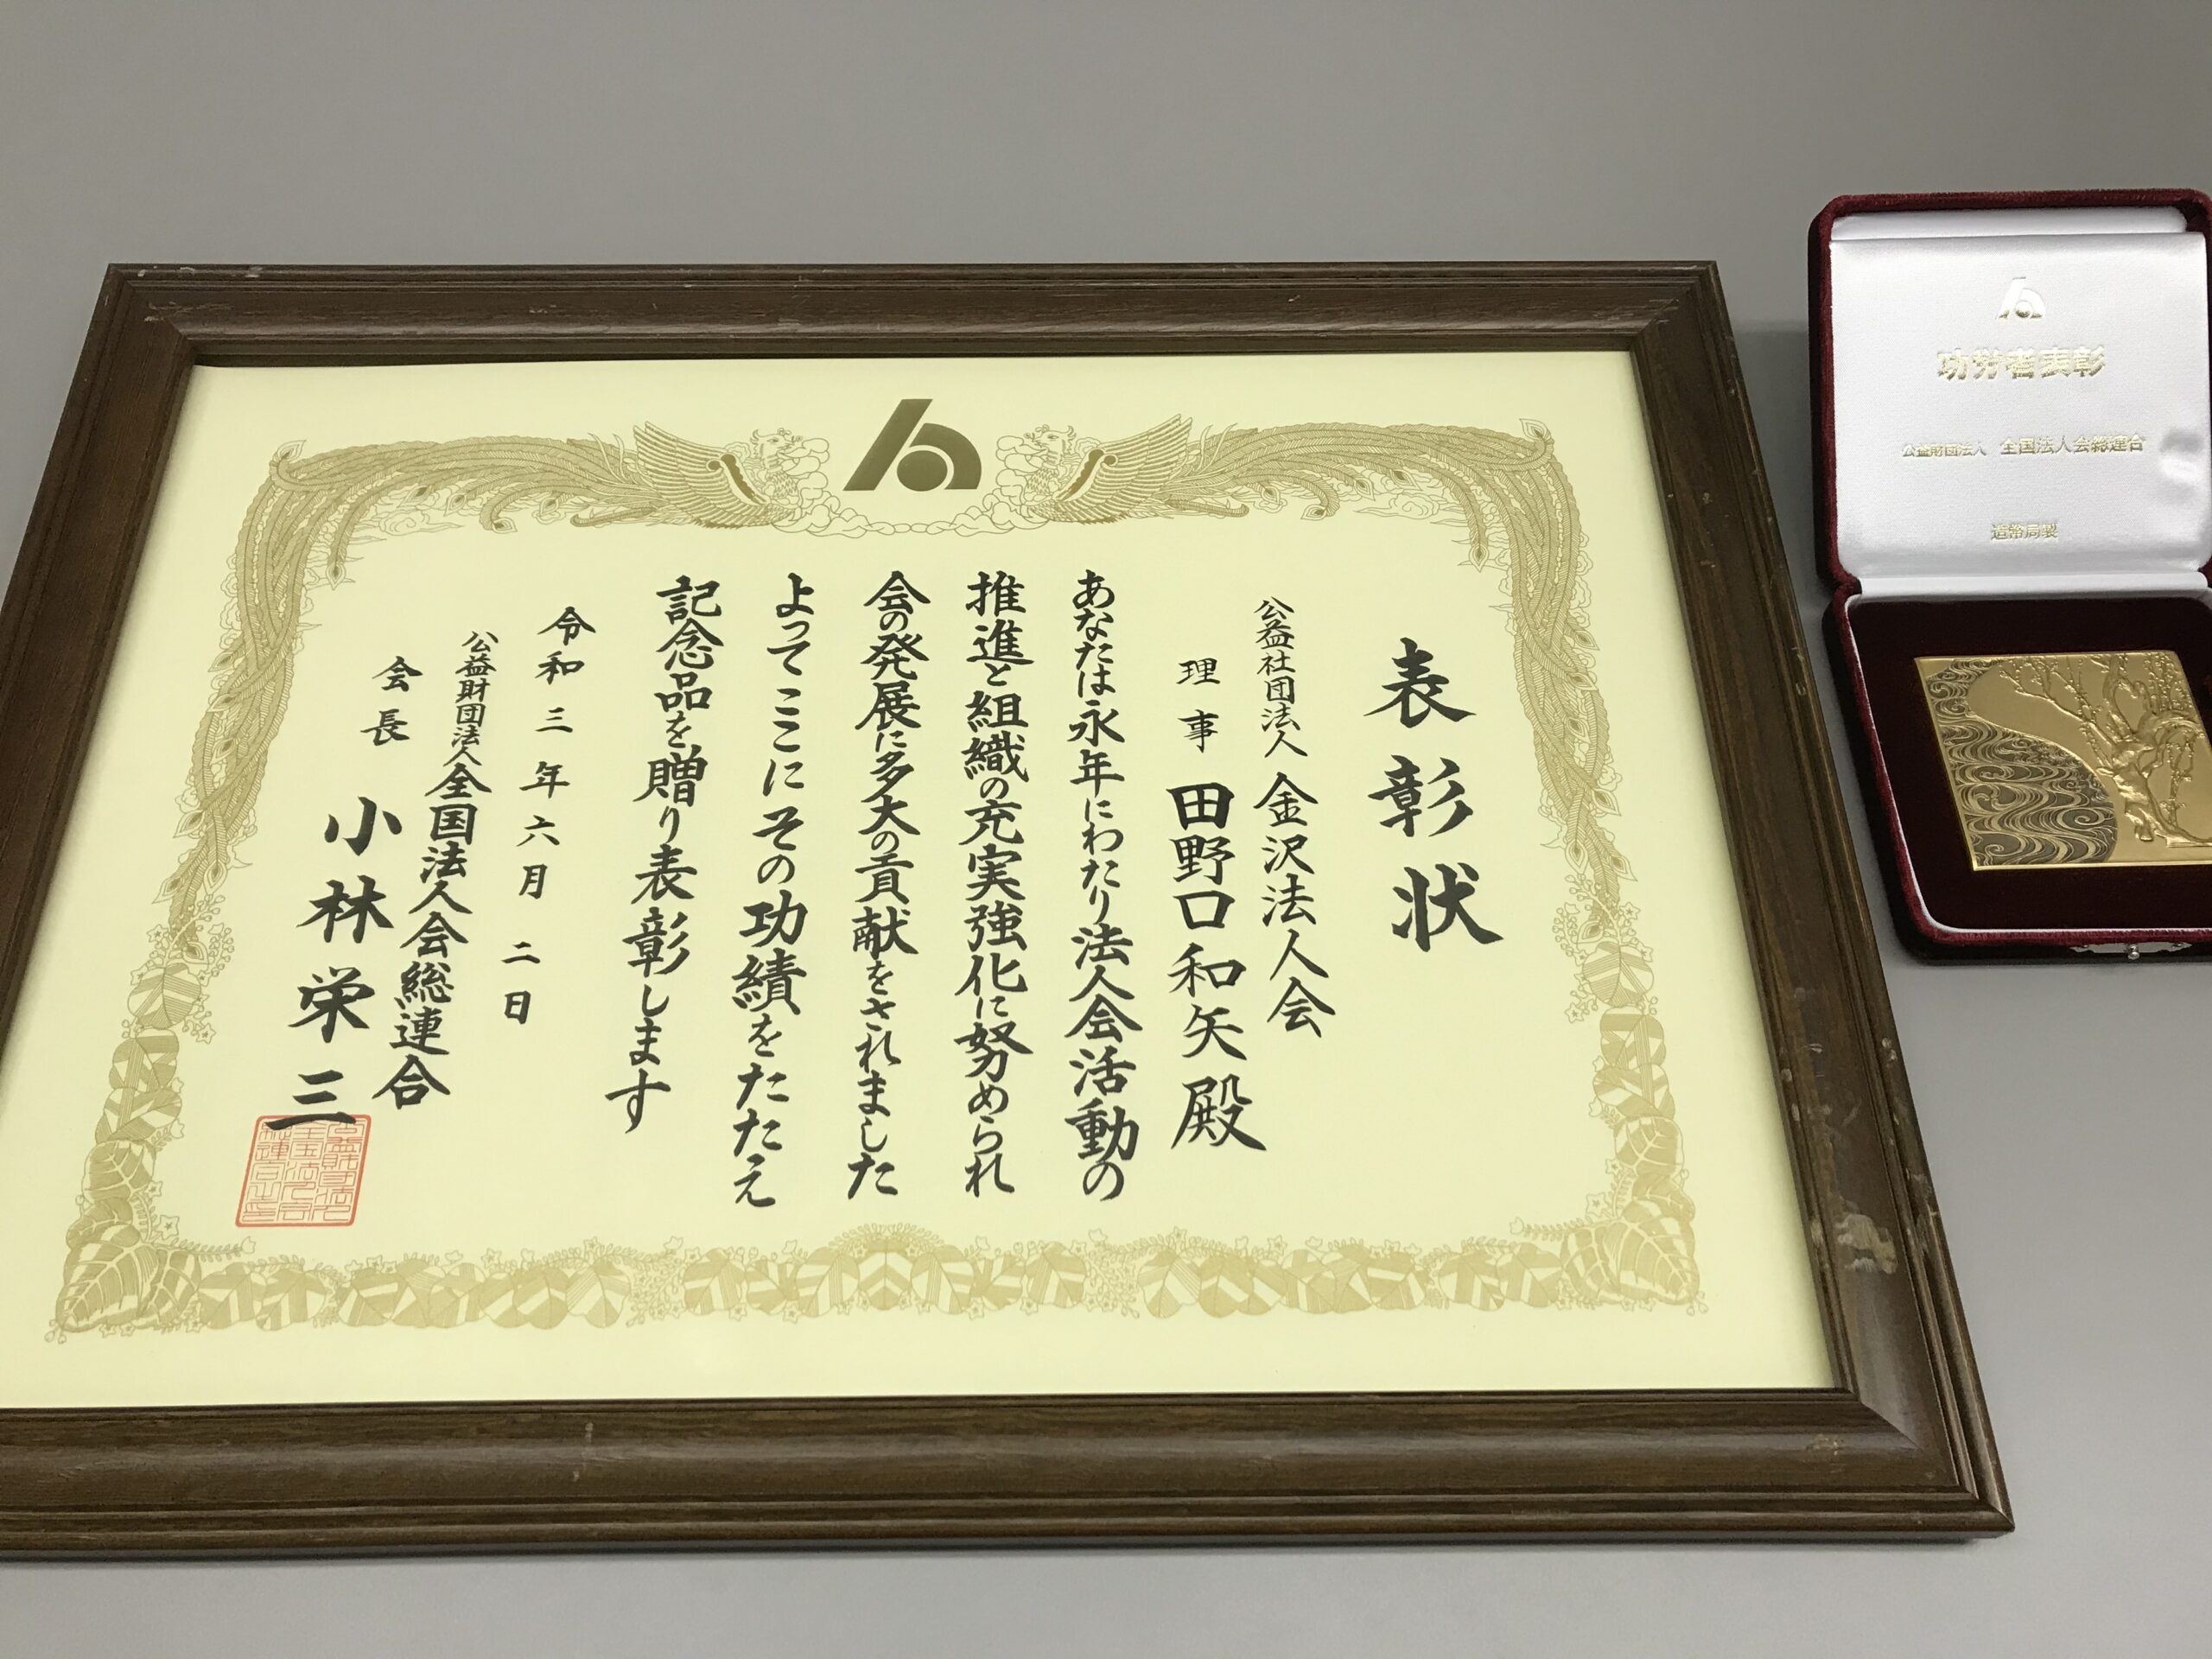 表彰状
公益社団法人 金沢法人会
理事 田野口和矢殿
あなたは永年にわたり法人会活動の
推進と組織の充実強化に努められ
会の発展に多大の貢献をされました
よってここにその功績をたたえ
記念品を贈り表彰します
令和三年六月二日
公益財団法人全国法人会総連合
会長 小林栄三
功労者表彰
公益財団法人 全国法人会総連合
造幣局製